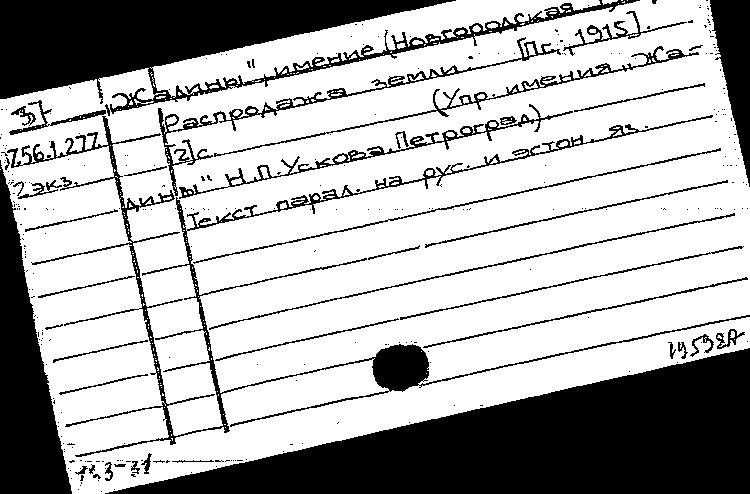 37
"Жадины", имение (Новгородская
Распродажа земли. [Пг., 1915].
7.56.1.277
[2]с. (Упр. имения "Жа-
2 экз.
дины" Н.П. Ускова, Петроград).
Текст парал. на рус. и эстон. яз.
19598А
113-31